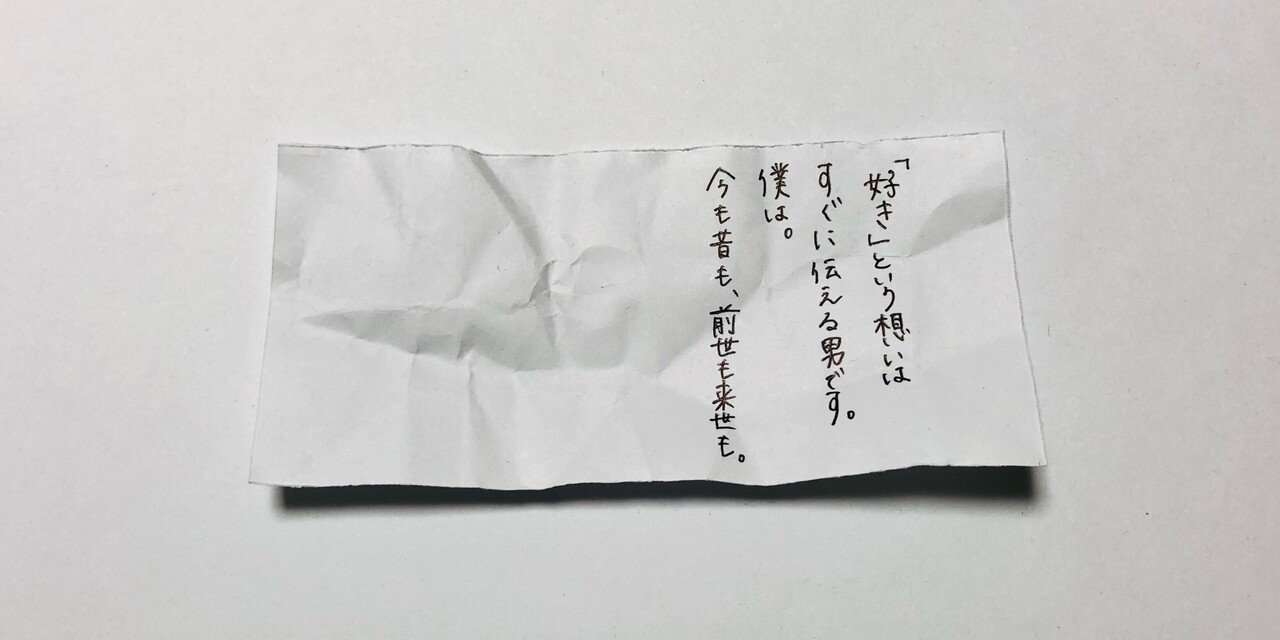 「好き」という想いは
すぐに伝える男です。
僕は。
今も昔も、前世も来世も。